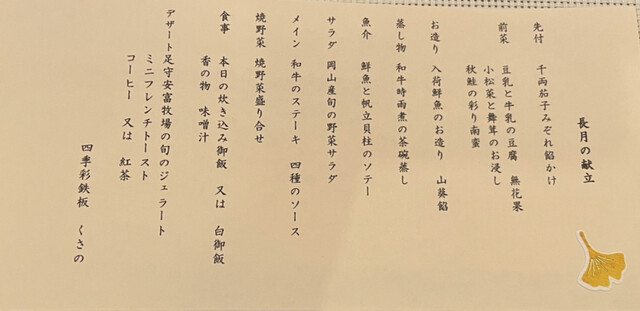 長月の献立
先付　千両茄子みぞれ餡かけ
前菜　豆乳と牛乳の豆腐　無花果
小松菜と舞茸のお浸し
秋鮭の彩り南蛮
お造り　入荷鮮魚のお造り　山葵餡
蒸し物　和牛時雨煮の茶碗蒸し
魚介　鮮魚と帆立貝柱のソテー
サラダ　岡山産旬の野菜サラダ
メイン　和牛のステーキ　四種のソース
焼野菜　焼野菜盛り合せ
食事　本日の炊き込み御飯　又は　白御飯
香の物　味噌汁
デザート　足守安富牧場の旬のジェラート
ミニフレンチトースト
コーヒー　又は　紅茶
四季彩鉄板　くさの